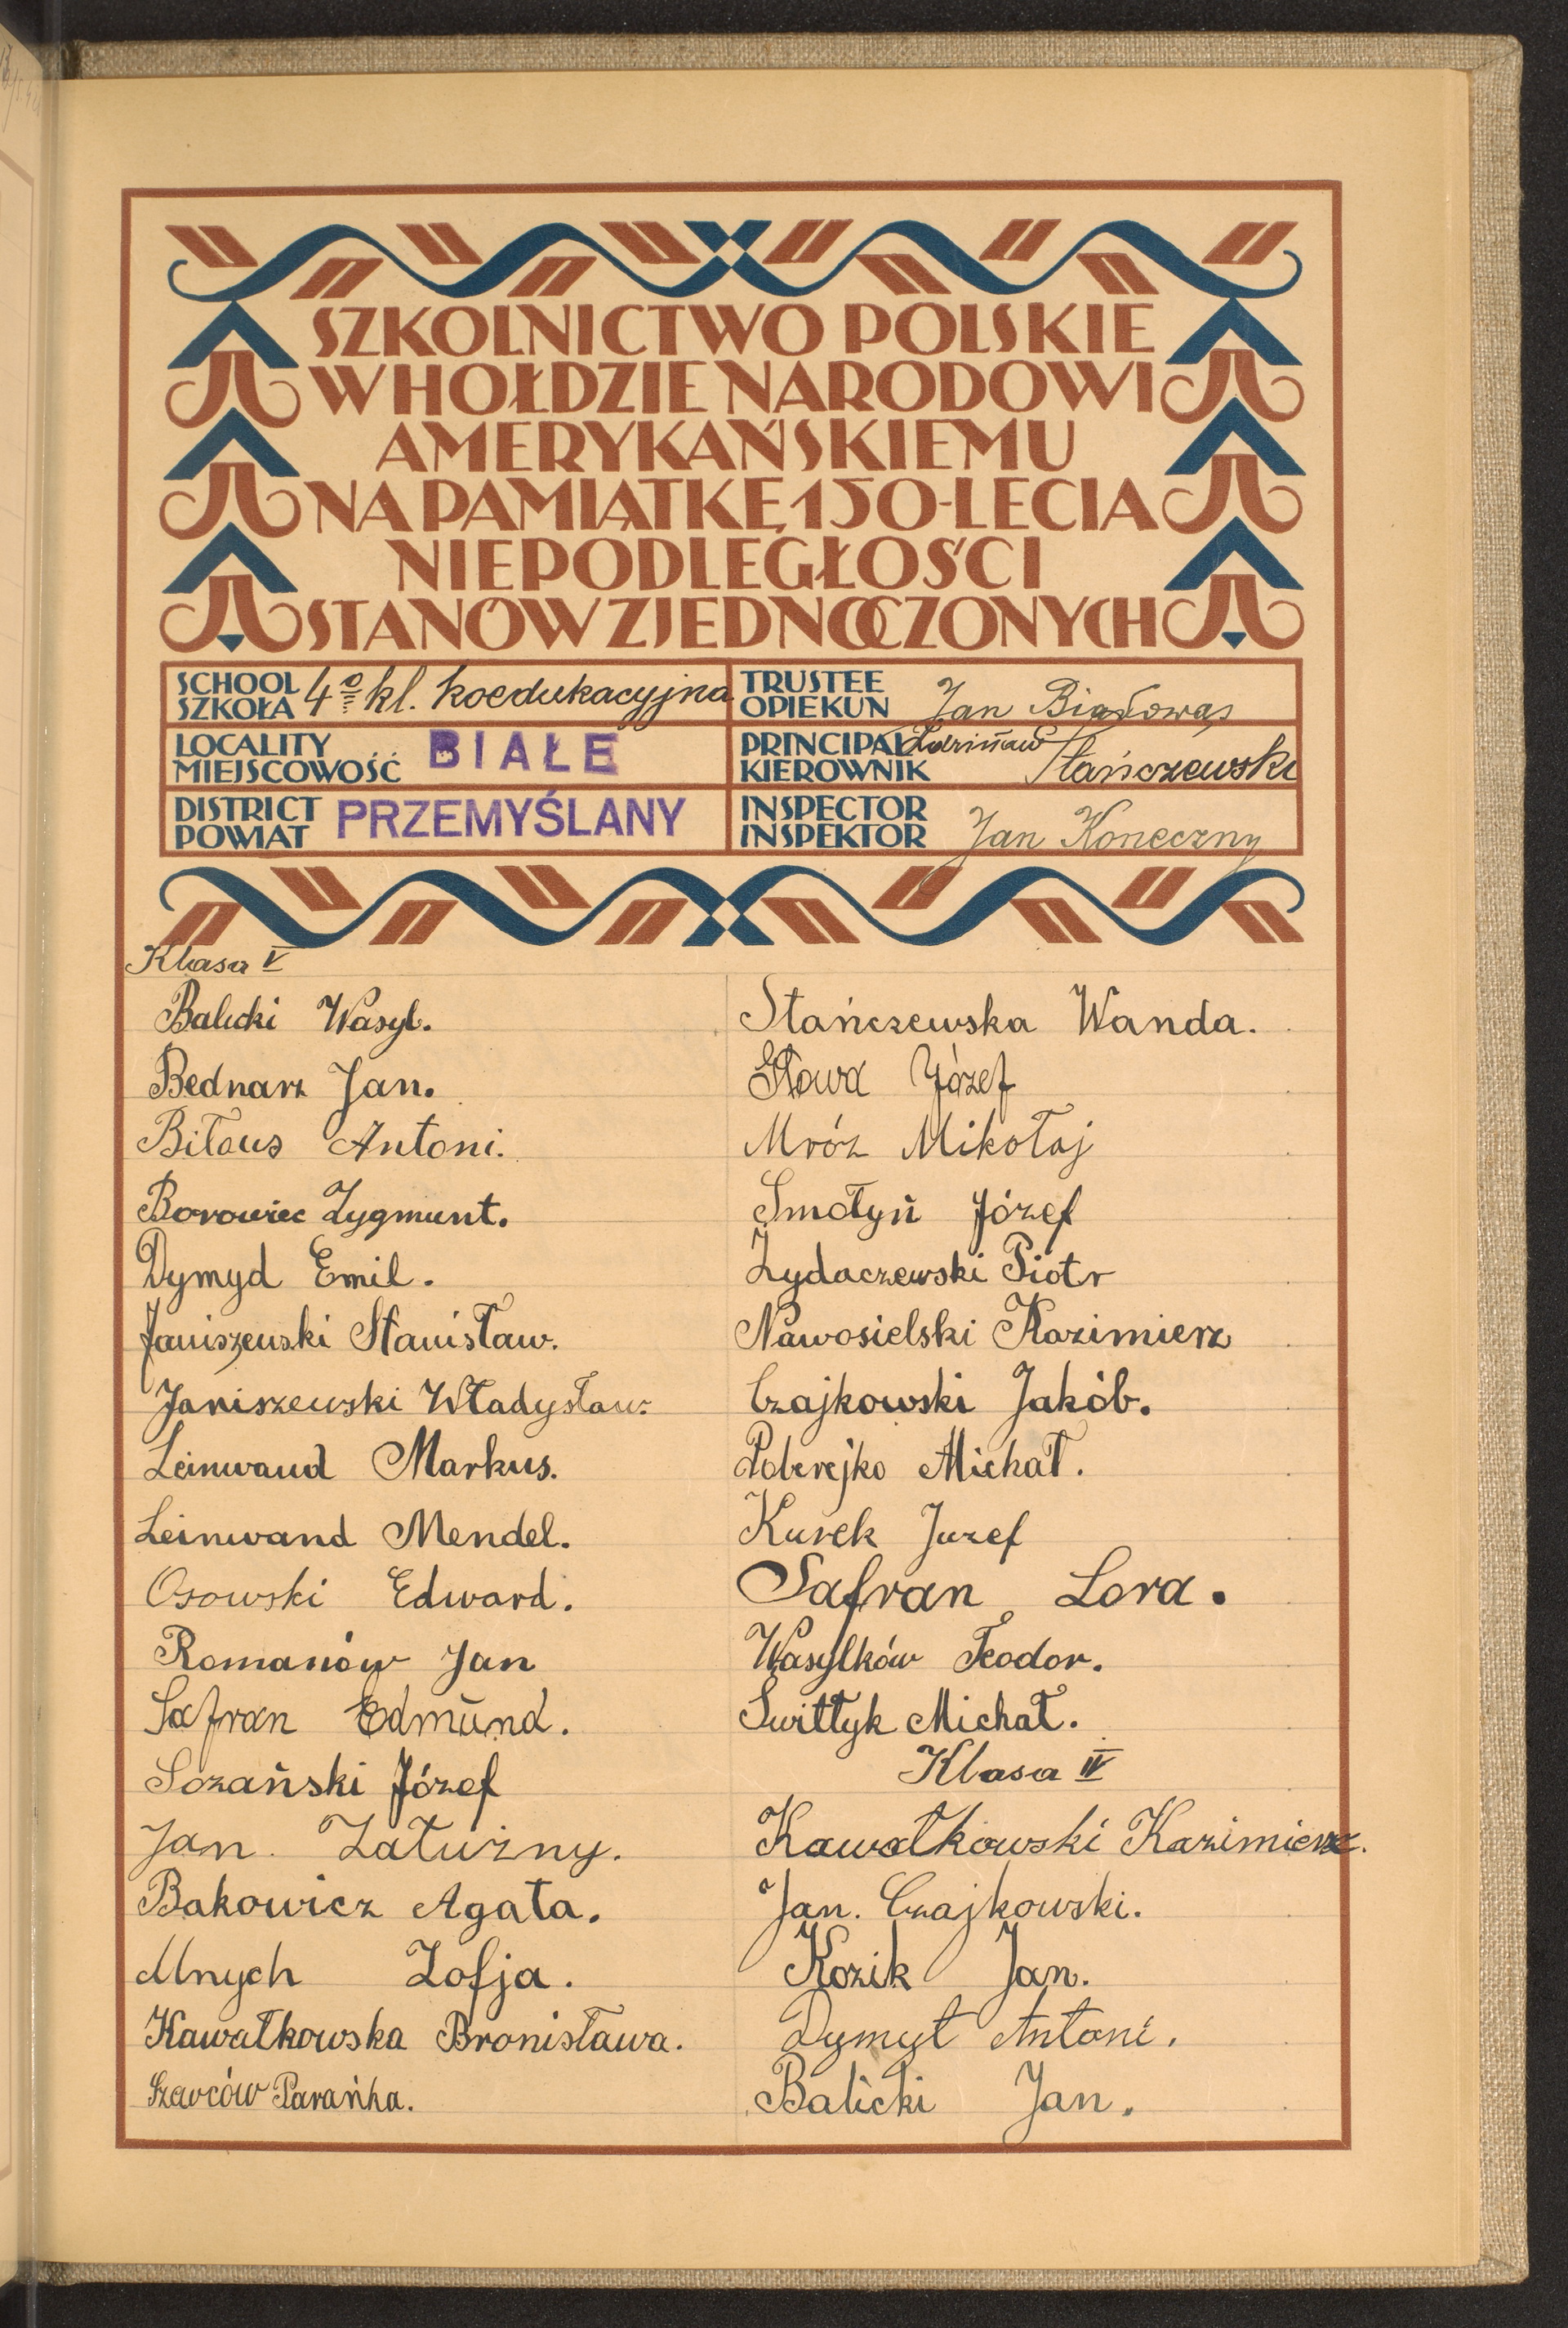 SZKOLNICTWO POLSKIE
W HOŁDZIE NARODOWI
AMERYKAŃSKIEMU
NA PAMIĄTKĘ 150-LECIA
NIEPODLEGŁOŚCI
STANÓW ZJEDNOCZONYCH
SCHOOL
SZKOŁA 4º kl. koedukacyjna
TRUSTEE
OPIEKUN Jan Białowąs
LOCALITY
MIEJSCOWOŚĆ BIAŁE
PRINCIPAL
KIEROWNIK Stańczewski
DISTRICT
POWIAT PRZEMYŚLANY
INSPECTOR
INSPEKTOR Jan Koneczny
Klasa V
Balicki Wasyl.
Bednarz Jan.
Biłous Antoni.
Borowiec Zygmunt.
Dymyd Emil.
Janiszewski Stanisław.
Janiszewski Władysław.
Leinwand Markus.
Leinwand Mendel.
Osowski Edward.
Romanów Jan
Safran Edmund.
Sozański Józef
Jan. Załużny.
Bakowicz Agata.
Mnych Zofja.
Kawałkowska Bronisława.
Szewców Parańka.
Stańczewska Wanda.
Głowa Józef
Mróz Mikołaj
Smołyń Józef
Żydaczewski Piotr
Nawosielski Kazimierz
Czajkowski Jakób.
Poberejko Michał.
Kurek Juzef
Safran Lora.
Wasylków Teodor.
Switłyk Michał.
Klasa IV
Kawałkowski Kazimierz.
Jan. Czajkowski.
Kozik Jan.
Dymyt Antoni.
Balicki Jan.